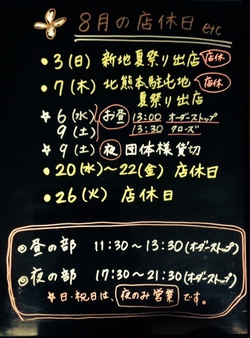 8月の店休日 etc
・3(日) 新地夏祭り出店 店休
・7(木) 北熊本駐屯地 店休
夏祭り出店
☆6(水) お昼 13:00 オーダーストップ
9(土) 13:30 クローズ
☆9(土) 夜 団体様貸切
・20(水)〜22(金) 店休日
・26(火) 店休日
◎昼の部 11:30〜13:30(オーダーストップ)
◎夜の部 17:30〜21:30(オーダーストップ)
☆日・祝日は、夜のみ営業です。